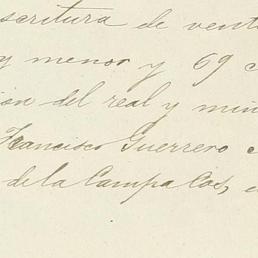 scritura de vent
y menor y 69 c
ión del real y min
Francisco Guerrero
de la Campa Cos,